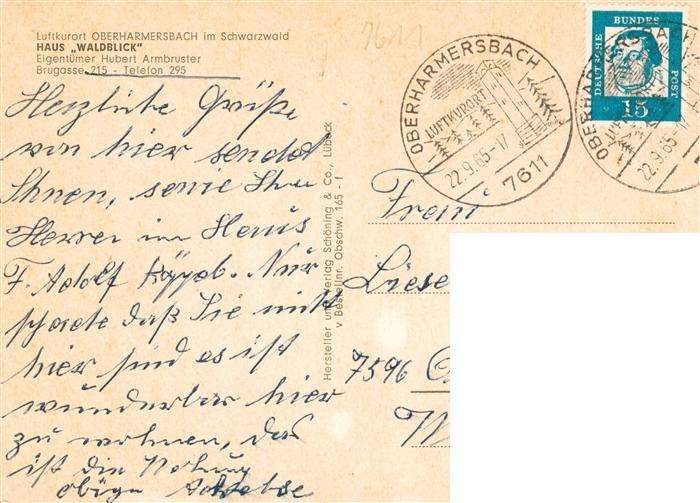 Luftkurort OBERHARMERSBACH im Schwarzwald
HAUS „WALDBLICK"
Eigentümer Hubert Armbruster
Brugasse 215 - Telefon 295
Herzliche Grüße
von hier sendet
Ihnen, sowie Ihre
Herren im Haus
F. Adolf
Nur
schade daß Sie nicht
hier sind es ist
wunderbar hier
zu wohnen, das
ist die
obige
Hersteller und Verlag Schöning & Co., Lübeck
Bestellnr. Obschw. 165 - f
7611
OBERHARMERSBACH
LUFTKURORT
22.9.65-17
7611
DEUTSCHE
BUNDES
POST
15
OBERHARMERSBACH
22.9.65-17
Liese
7596